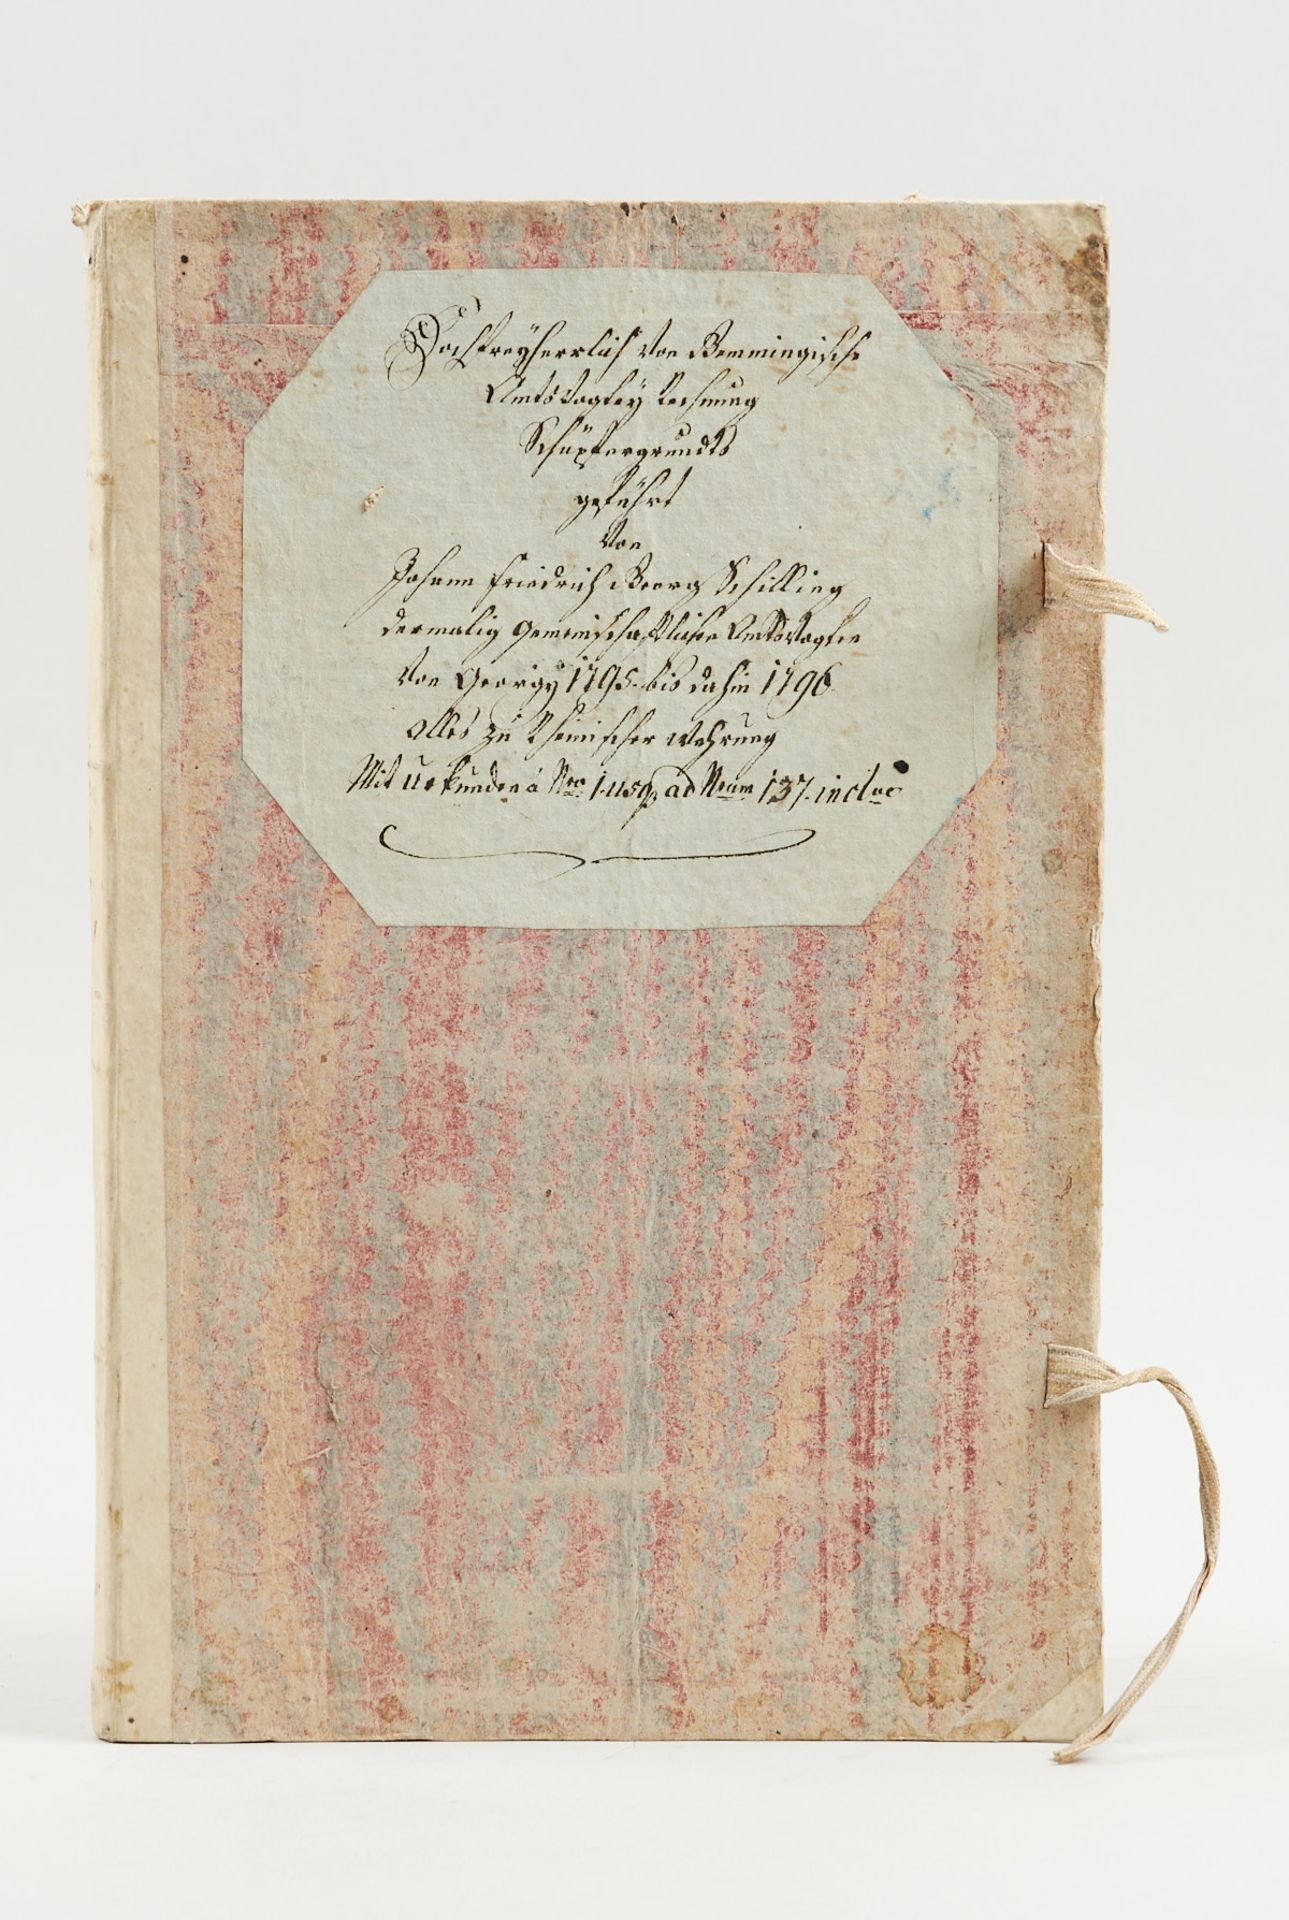 Hochfreyherrlich von Gemmingische
Amtsvogtey Rechnung
Schüpfergrundts
geführt
von
Johann Friedrich Georg Schilling
dermalig gemeinschaftlichen Amtsvogten
von Georgy 1795. bis dahin 1796
alles zu Rheinischer Wehrung
Mit Urkunden à Nro 1. usq ad Num 137. inclve